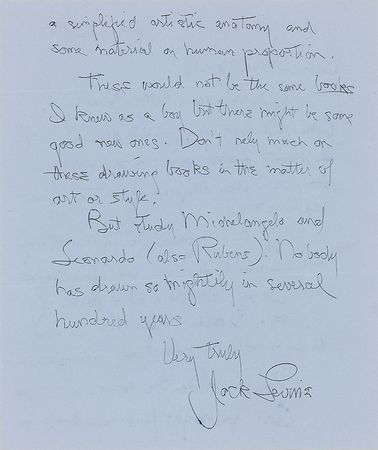 a simplified artistic anatomy and
some material on human proportion.
These would not be the same books
I knew as a boy but there might be some
good new ones. Don't rely much on
these drawing books in the matter of
art or style.
But study Michelangelo and
Leonardo (also Rubens). Nobody
has drawn so mightily in several
hundred years
Very truly
Jack Levine